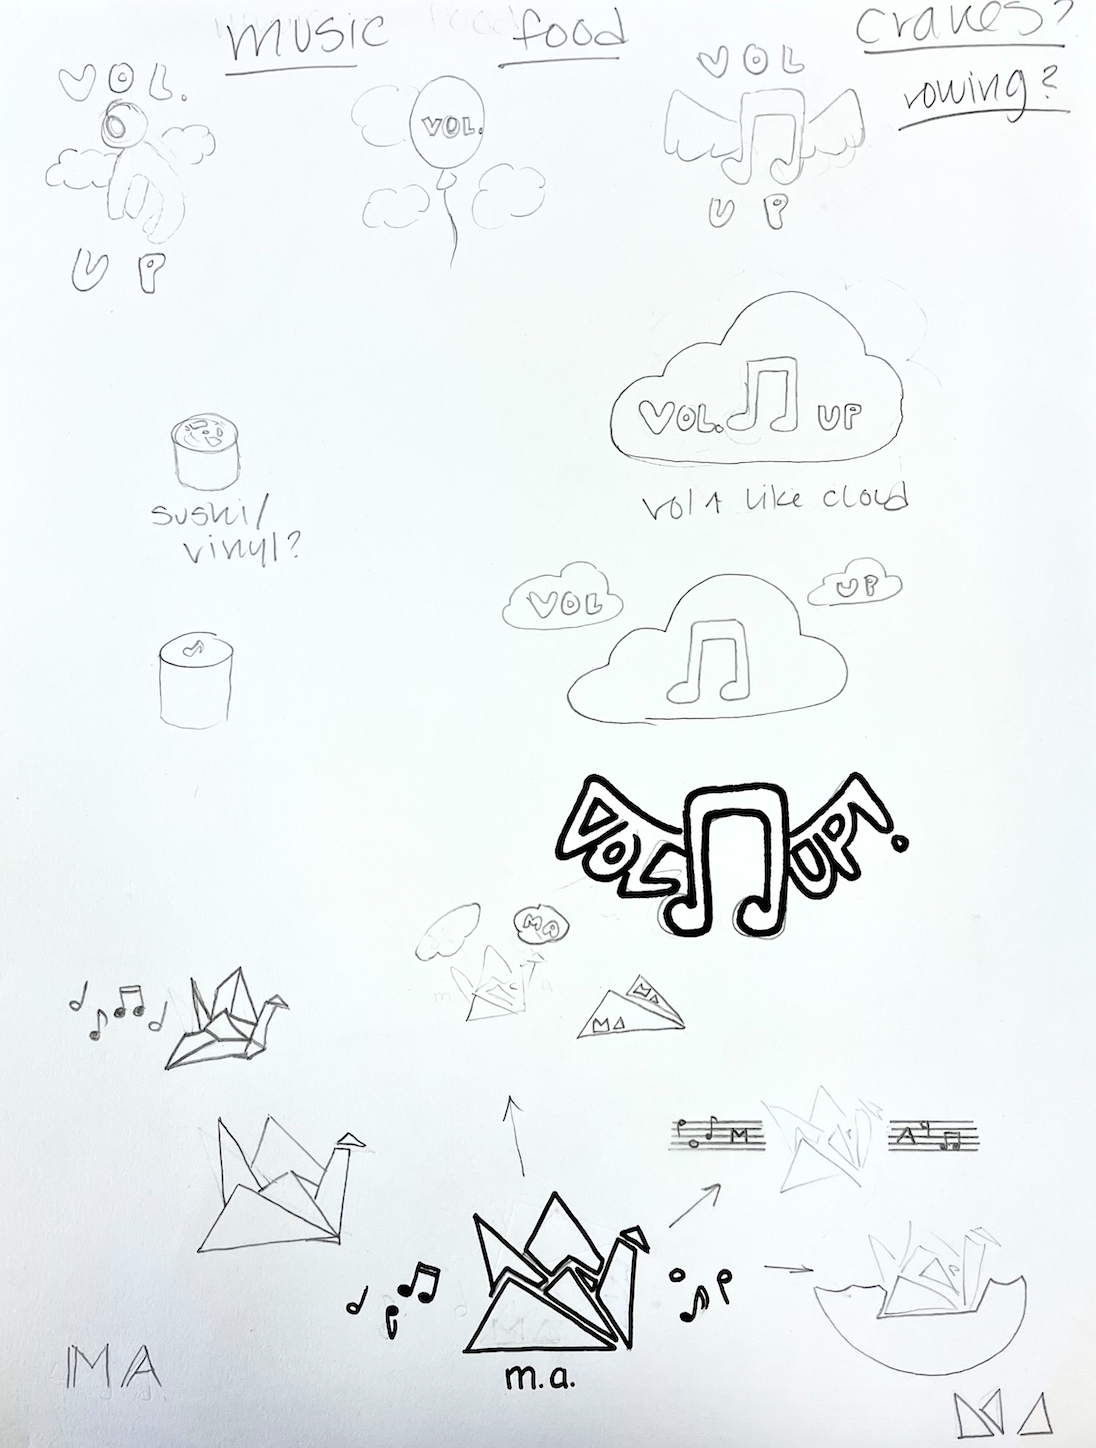 music food cranes?
rowing?
VOL.
UP
VOL.
VOL
UP
VOL. UP
vol↑ like cloud
sushi/
vinyl?
VOL UP
VOL UP!
MA
MA
MA
M A
m.a.
MA
MA